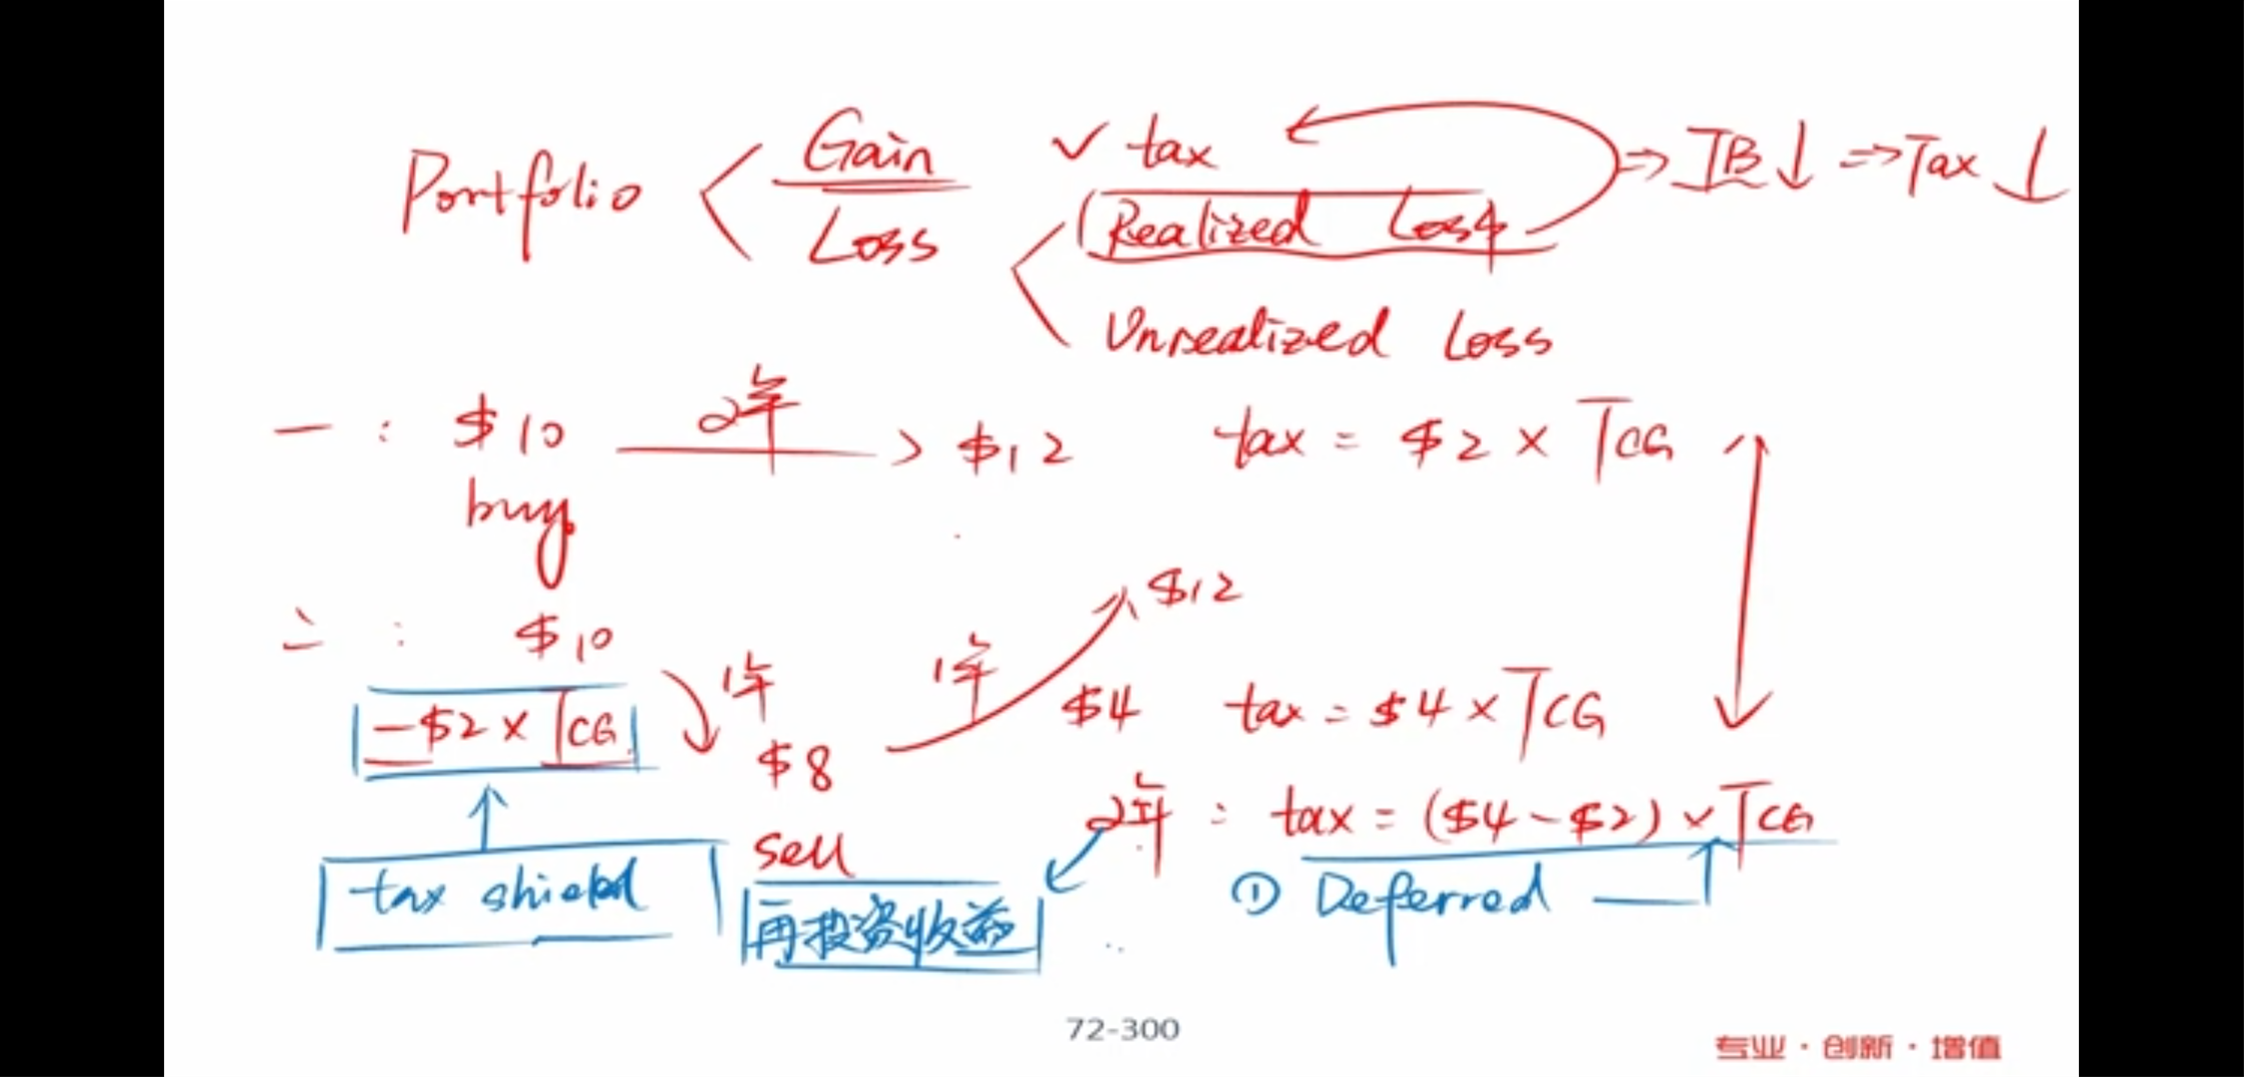 Gain ✓ tax ⇒ TB↓ ⇒ Tax↓
Portfolio
Loss Realized Loss
Unrealized Loss
一: $10 2年 $12 tax = $2 × TCG
buy
二: $10 1年 $8 1年 $12
-$2 × TCG $4 tax = $4 × TCG
sell 2年: tax = ($4 - $2) × TCG
tax shield 再投资收益 ① Deferred
72-300
专业·创新·增值